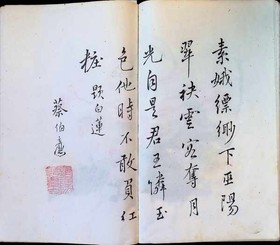 素娥縹緲下巫陽
翠袂雲容奪月
光自是君王憐玉
色他時不敢負紅
粧 題白蓮
蔡伯